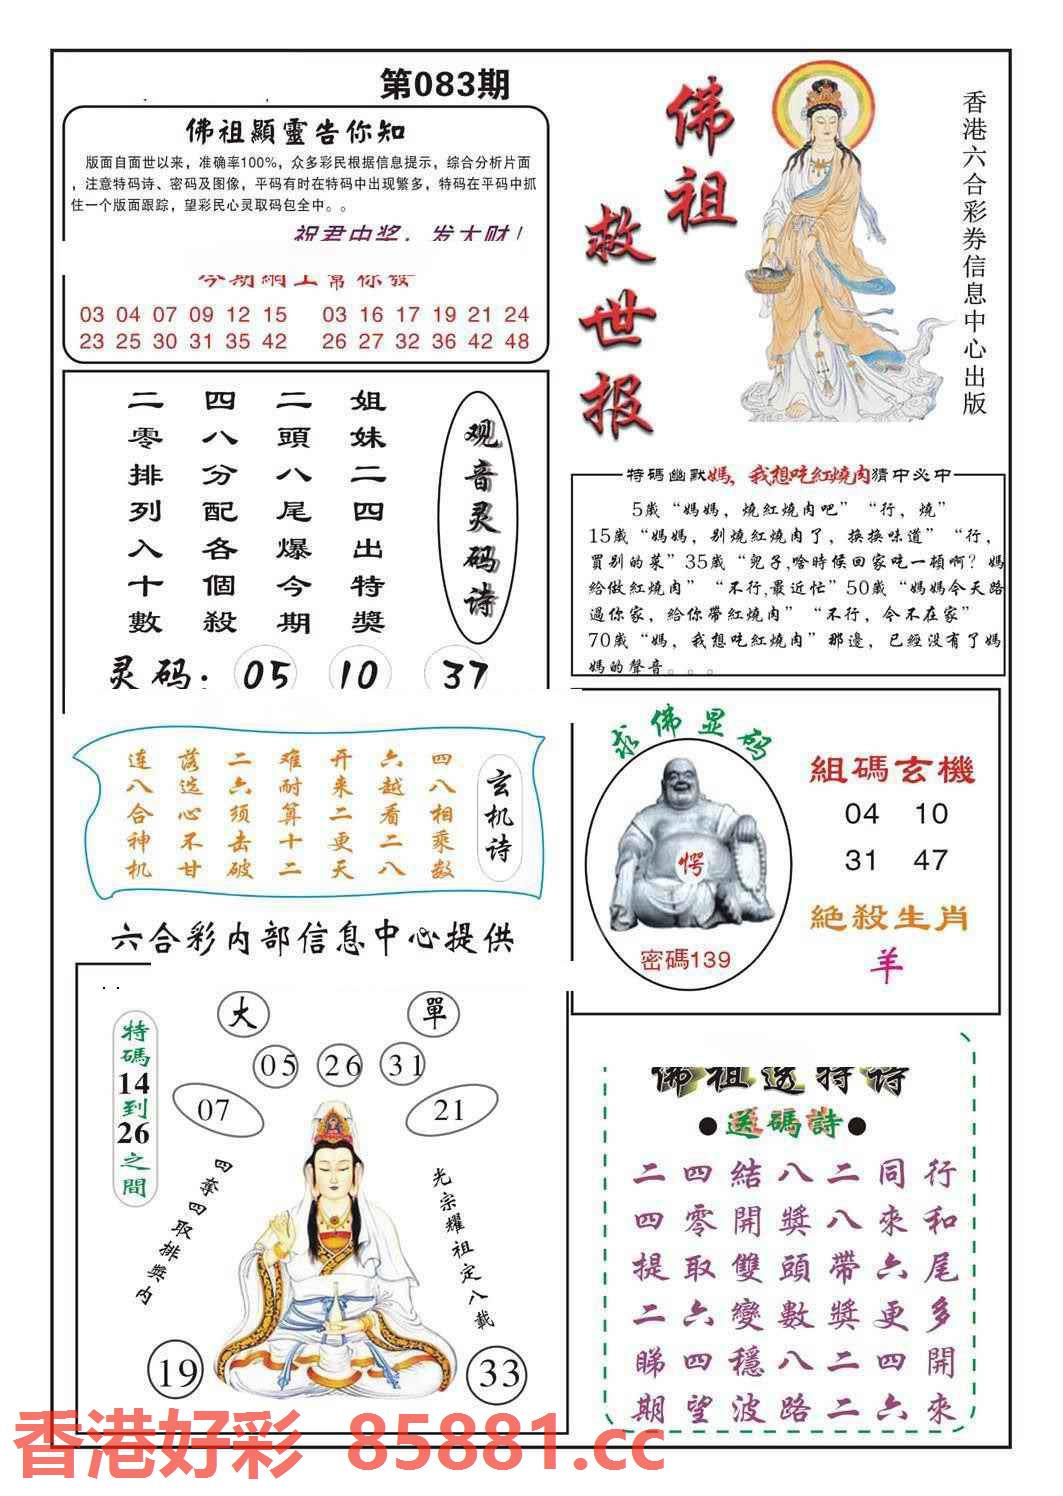 第083期
佛祖顯靈告你知
版面自面世以来，准确率100%，众多彩民根据信息提示，综合分析片面
，注意特码诗、密码及图像，平码有时在特码中出现繁多，特码在平码中抓
住一个版面跟踪，望彩民心灵取码包全中。。
祝君中奖，发大财！
今期網上幫你發
03 04 07 09 12 15 03 16 17 19 21 24
23 25 30 31 35 42 26 27 32 36 42 48
佛祖
救世报
香港六合彩券信息中心出版
观音灵码诗
姐妹二四出特獎
二頭八尾爆今期
四八分配各個殺
二零排列入十數
灵码：05 10 37
特碼幽默媽，我想吃紅燒肉猜中必中
5歲“媽媽，燒紅燒肉吧”“行，燒”
15歲“媽媽，别燒紅燒肉了，换换味道”“行，
買别的菜”35歲“兒子,啥時候回家吃一頓啊？媽
給做紅燒肉”“不行,最近忙”50歲“媽媽今天路
過你家，給你帶紅燒肉”“不行，今不在家”
70歲“媽，我想吃紅燒肉”那邊，已經没有了媽
媽的聲音。。。
玄机诗
四八相乘数
六越看二八
开来二更天
难耐算十二
二六须击破
落选心不甘
连八合神机
六合彩内部信息中心提供
求佛显码
愕
密碼139
組碼玄機
04 10
31 47
絶殺生肖
羊
大 單
05 26 31
07 21
特碼14到26之間
四奪四取排獎内
光宗耀祖定八載
19 33
佛祖送特诗
●送碼詩●
行和尾多開來
同來六更四六
二八帶獎二二
八獎頭數八路
結開雙變穩波
四零取六四望
二四提二睇期
香港好彩 85881.cc